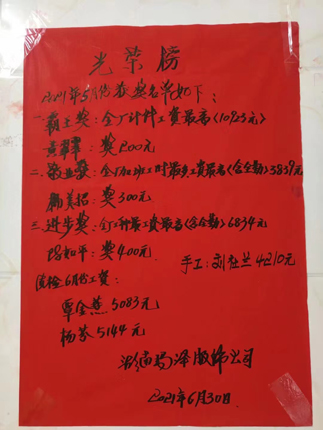 光荣榜
2021年5月份获奖名单如下：
一.霸王奖：全厂计件工资最高（10923元）
奖200元
二.敬业奖：全厂加班工时最多工资最高（含全勤）3839元
奖300元
三.进步奖：工种最工资最高（含全勤）6834元
和平：奖400元
手工：刘社兰4210元
质检6月份工资：
覃金蕉5083元
杨芬5144元
泽服饰公司
2021年6月30日